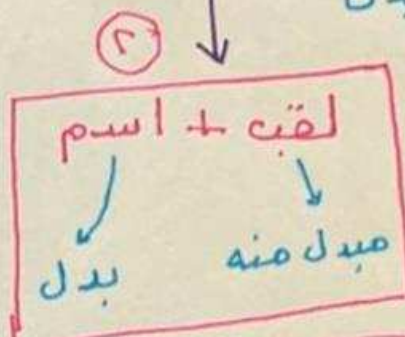 ٢
لقب + اسم
مبدل منه بدل